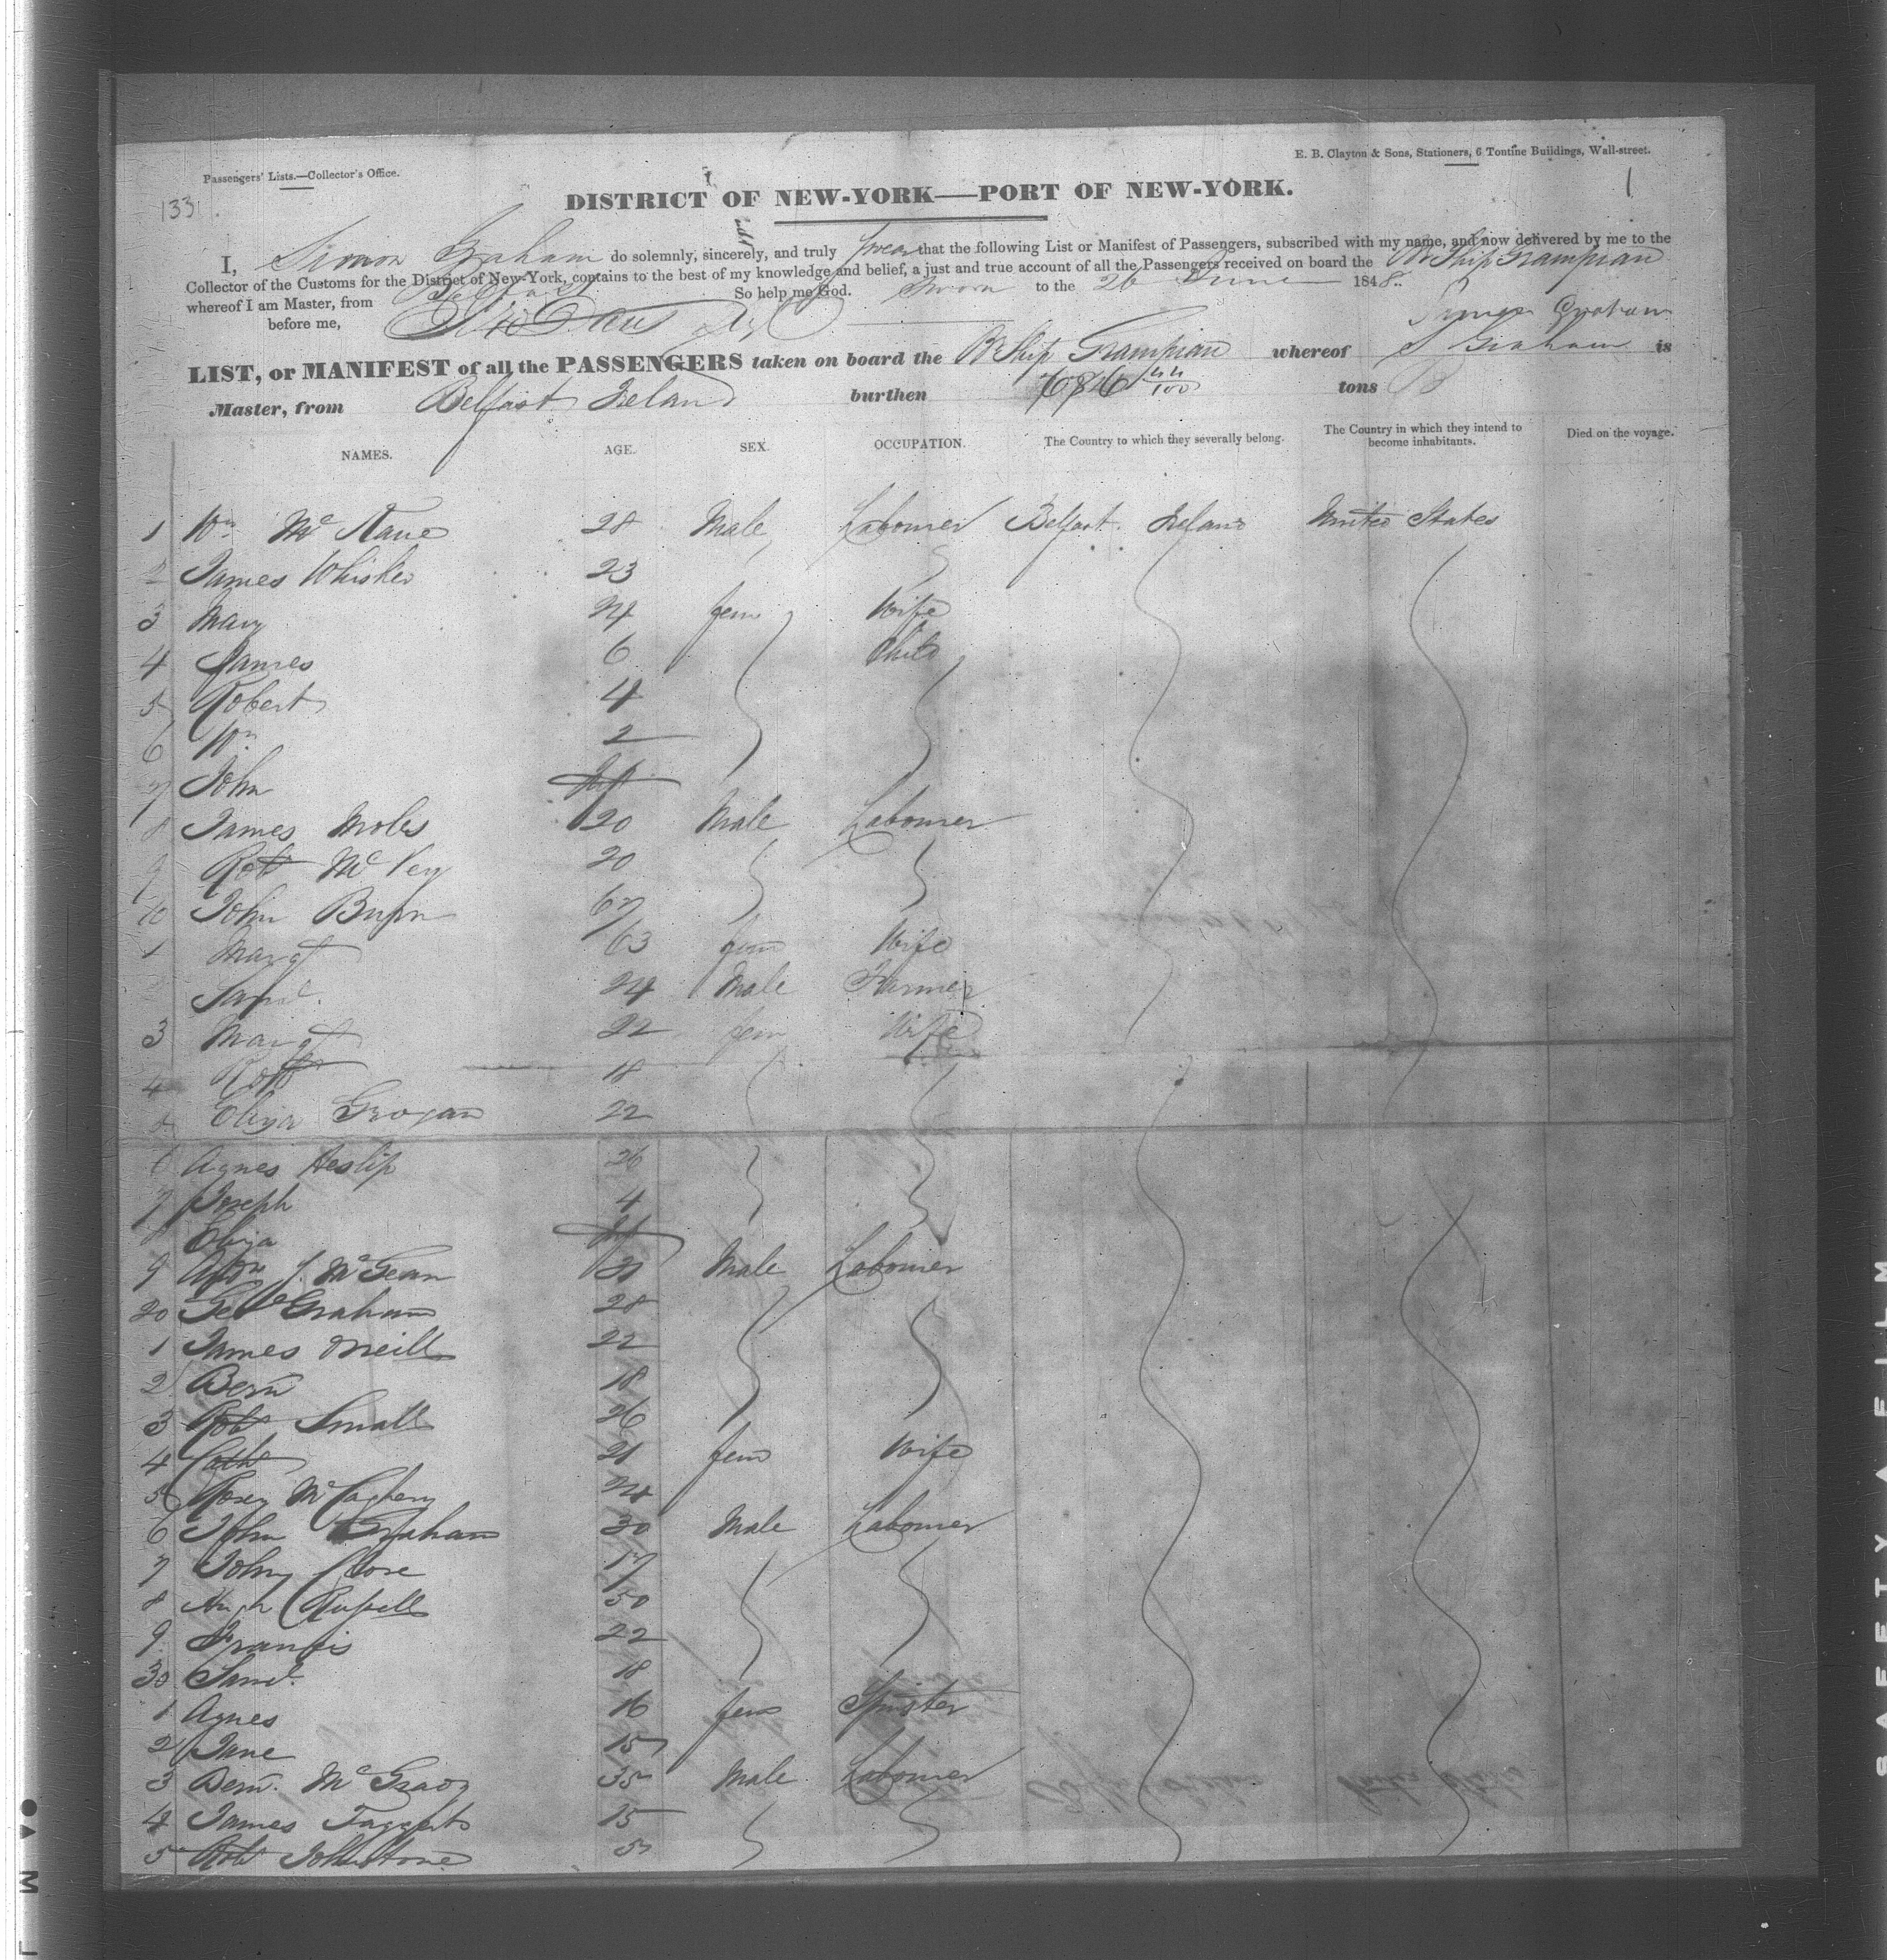 Passengers' Lists.—Collector's Office.
E. B. Clayton & Sons, Stationers, 6 Tontine Buildings, Wall-street.
133
1
DISTRICT OF NEW-YORK—PORT OF NEW-YORK.
I, Simon Graham do solemnly, sincerely, and truly swear that the following List or Manifest of Passengers, subscribed with my name, and now delivered by me to the
Collector of the Customs for the District of New-York, contains to the best of my knowledge and belief, a just and true account of all the Passengers received on board the Br Ship Grampian
whereof I am Master, from Belfast So help me God. Sworn to the 26 June 1848.
before me, Graham
LIST, or MANIFEST of all the PASSENGERS taken on board the Br Ship Grampian whereof S Graham is
Master, from Belfast Ireland burthen 686 44/100 tons
NAMES. AGE. SEX. OCCUPATION. The Country to which they severally belong. The Country in which they intend to become inhabitants. Died on the voyage.
1 Wm Mc 28 Male Labourer Belfast Ireland United States
2 James Whisker 23
3 Mary 24 fem Wife
4 James 6 Child
5 Robert 4
6 Wm 2
7 John
8 James Moles 20 Male Labourer
9 Robt McVey 20
10 John Burn 67
1 Margt 63 fem Wife
Saml. 24 Male Farmer
3 Margt 22 fem Wife
4 Robt 18
5 Eliza Grogan 22
6 Agnes Heslip 26
7 Joseph 4
8 Eliza
9 J. McGean Male Labourer
20 Geo Graham 28
1 James Oneill 22
2 Bernd 18
3 Robt Small 26
4 Cath 21 fem Wife
5 Rosey 24
6 John Graham 30 Male Labourer
7 John Close 17
8 Hugh Russell 50
9 Francis 22
30 Saml. 18
1 Agnes 16 fem Spinster
2 Jane 15
3 Bernd. McGrady 35 Male Labourer
4 James Taggart 15
5 Robt Johnstone
SAFETY FILM